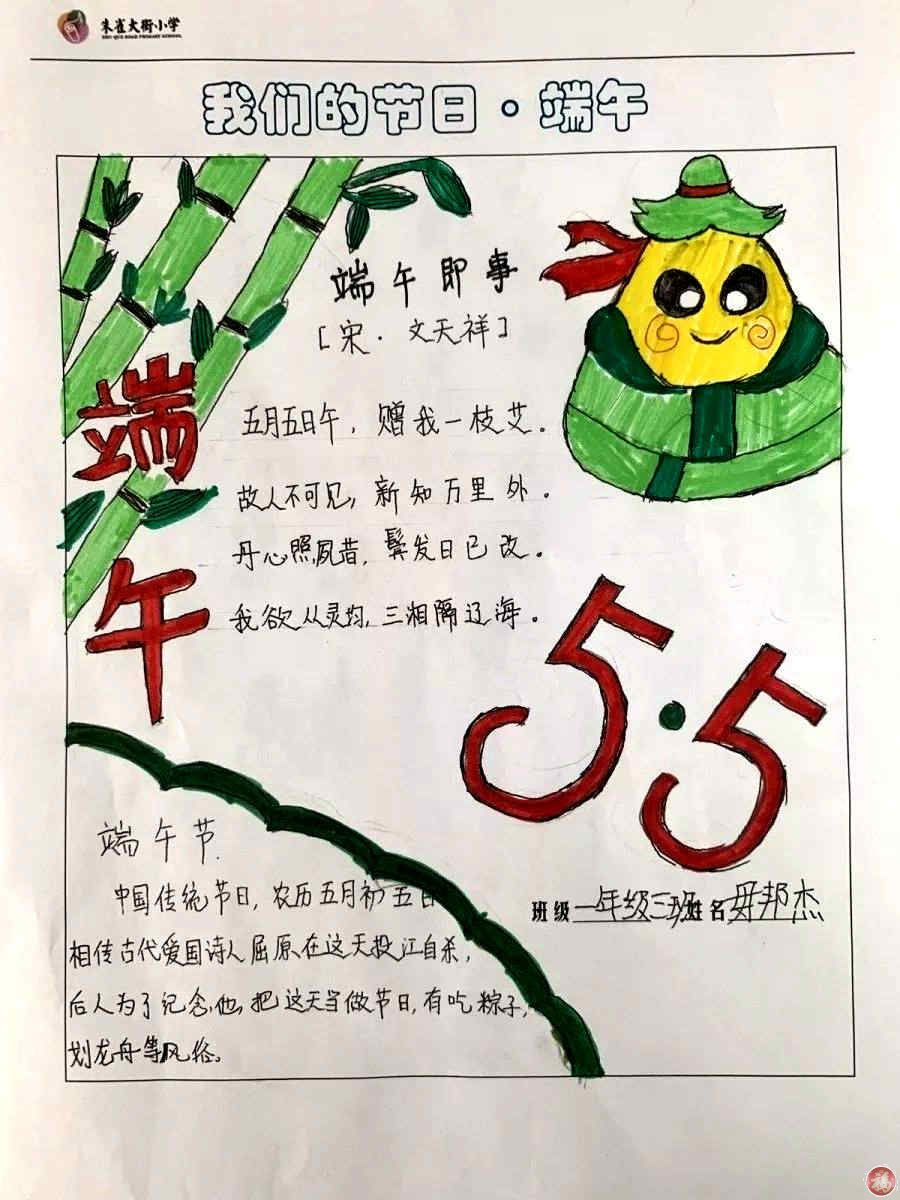 朱雀大街小学
ZHU QUE ROAD PRIMARY SCHOOL
我们的节日·端午
端午即事
[宋·文天祥]
五月五日午，赠我一枝艾。
故人不可见，新知万里外。
丹心照夙昔，鬓发日已改。
我欲从灵均，三湘隔辽海。
端午
5·5
端午节
中国传统节日，农历五月初五日
相传古代爱国诗人屈原在这天投江自杀，
后人为了纪念他，把这天当做节日，有吃粽子，
划龙舟等风俗。
班级 一年级三班 姓名 毋邦杰
福